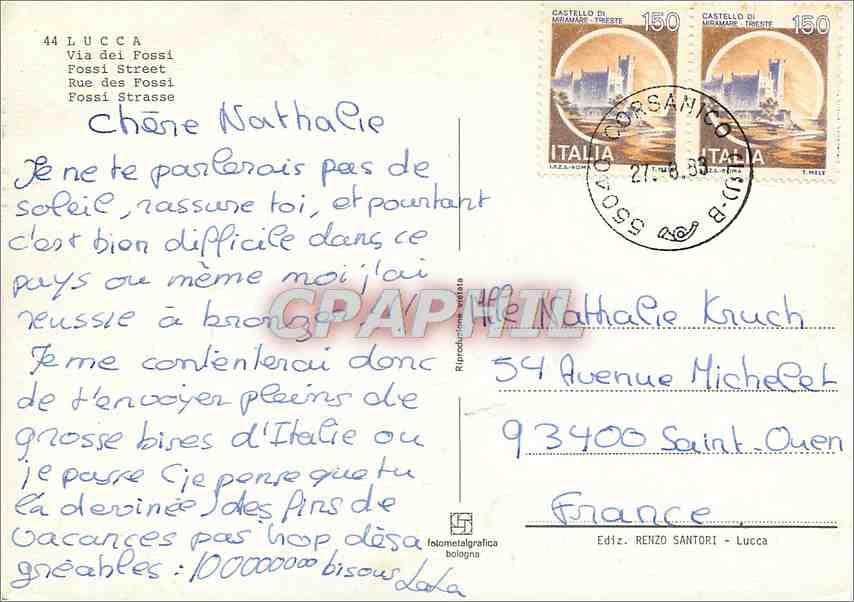 44 LUCCA
Via dei Fossi
Fossi Street
Rue des Fossi
Fossi Strasse
CASTELLO DI
MIRAMARE - TRIESTE
150
ITALIA
I.P.Z.S. - ROMA
T. MELE
CASTELLO DI
MIRAMARE - TRIESTE
150
ITALIA
I.P.Z.S. - ROMA
T. MELE
55040 CORSANICO (LU) - B
27. 8.83
chère Nathalie
Je ne te parlerais pas de
soleil, rassure toi, et pourtant
c'est bien difficile dans ce
pays ou même moi j'ai
reussie à bronzer !!
Je me contenterai donc
de t'envoyer pleins de
grosse bises d'Italie ou
je passe (je pense que tu
la devinée) des fins de
vacances pas trop désa
gréables : 100000000 bisous LaLa
CPAPHIL
Riproduzione vietata
Mlle Nathalie Kruch
54 Avenue Michelet
93400 Saint-Ouen
France
fotometalgrafica
bologna
Ediz. RENZO SANTORI - Lucca